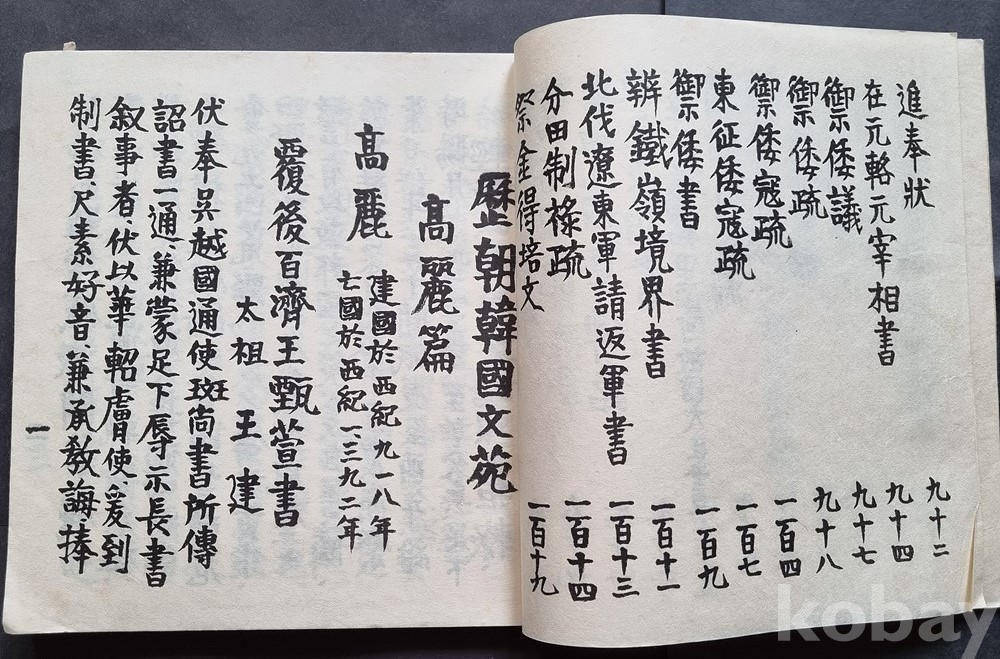 進奉狀 九十二
在元輅元宰相書 九十四
禦倭議 九十七
禦倭疏 九十八
禦倭寇疏 一百四
東征倭寇疏 一百七
禦倭書 一百九
辨鐵嶺境界書 一百十一
北伐遼東軍請返軍書 一百十三
分田制祿疏 一百十四
祭金得培文 一百十九
歷朝韓國文苑
高麗篇
高麗 建國於西紀九一八年
亡國於西紀一、三九二年
覆後百濟王甄萱書
太祖 王建
伏奉吳越國通使班尚書所傳
詔書一通、兼蒙足下辱示長書
敘事者、伏以華軺膚使、爰到
制書、尺素好音、兼承敎誨、捧
一
kobay